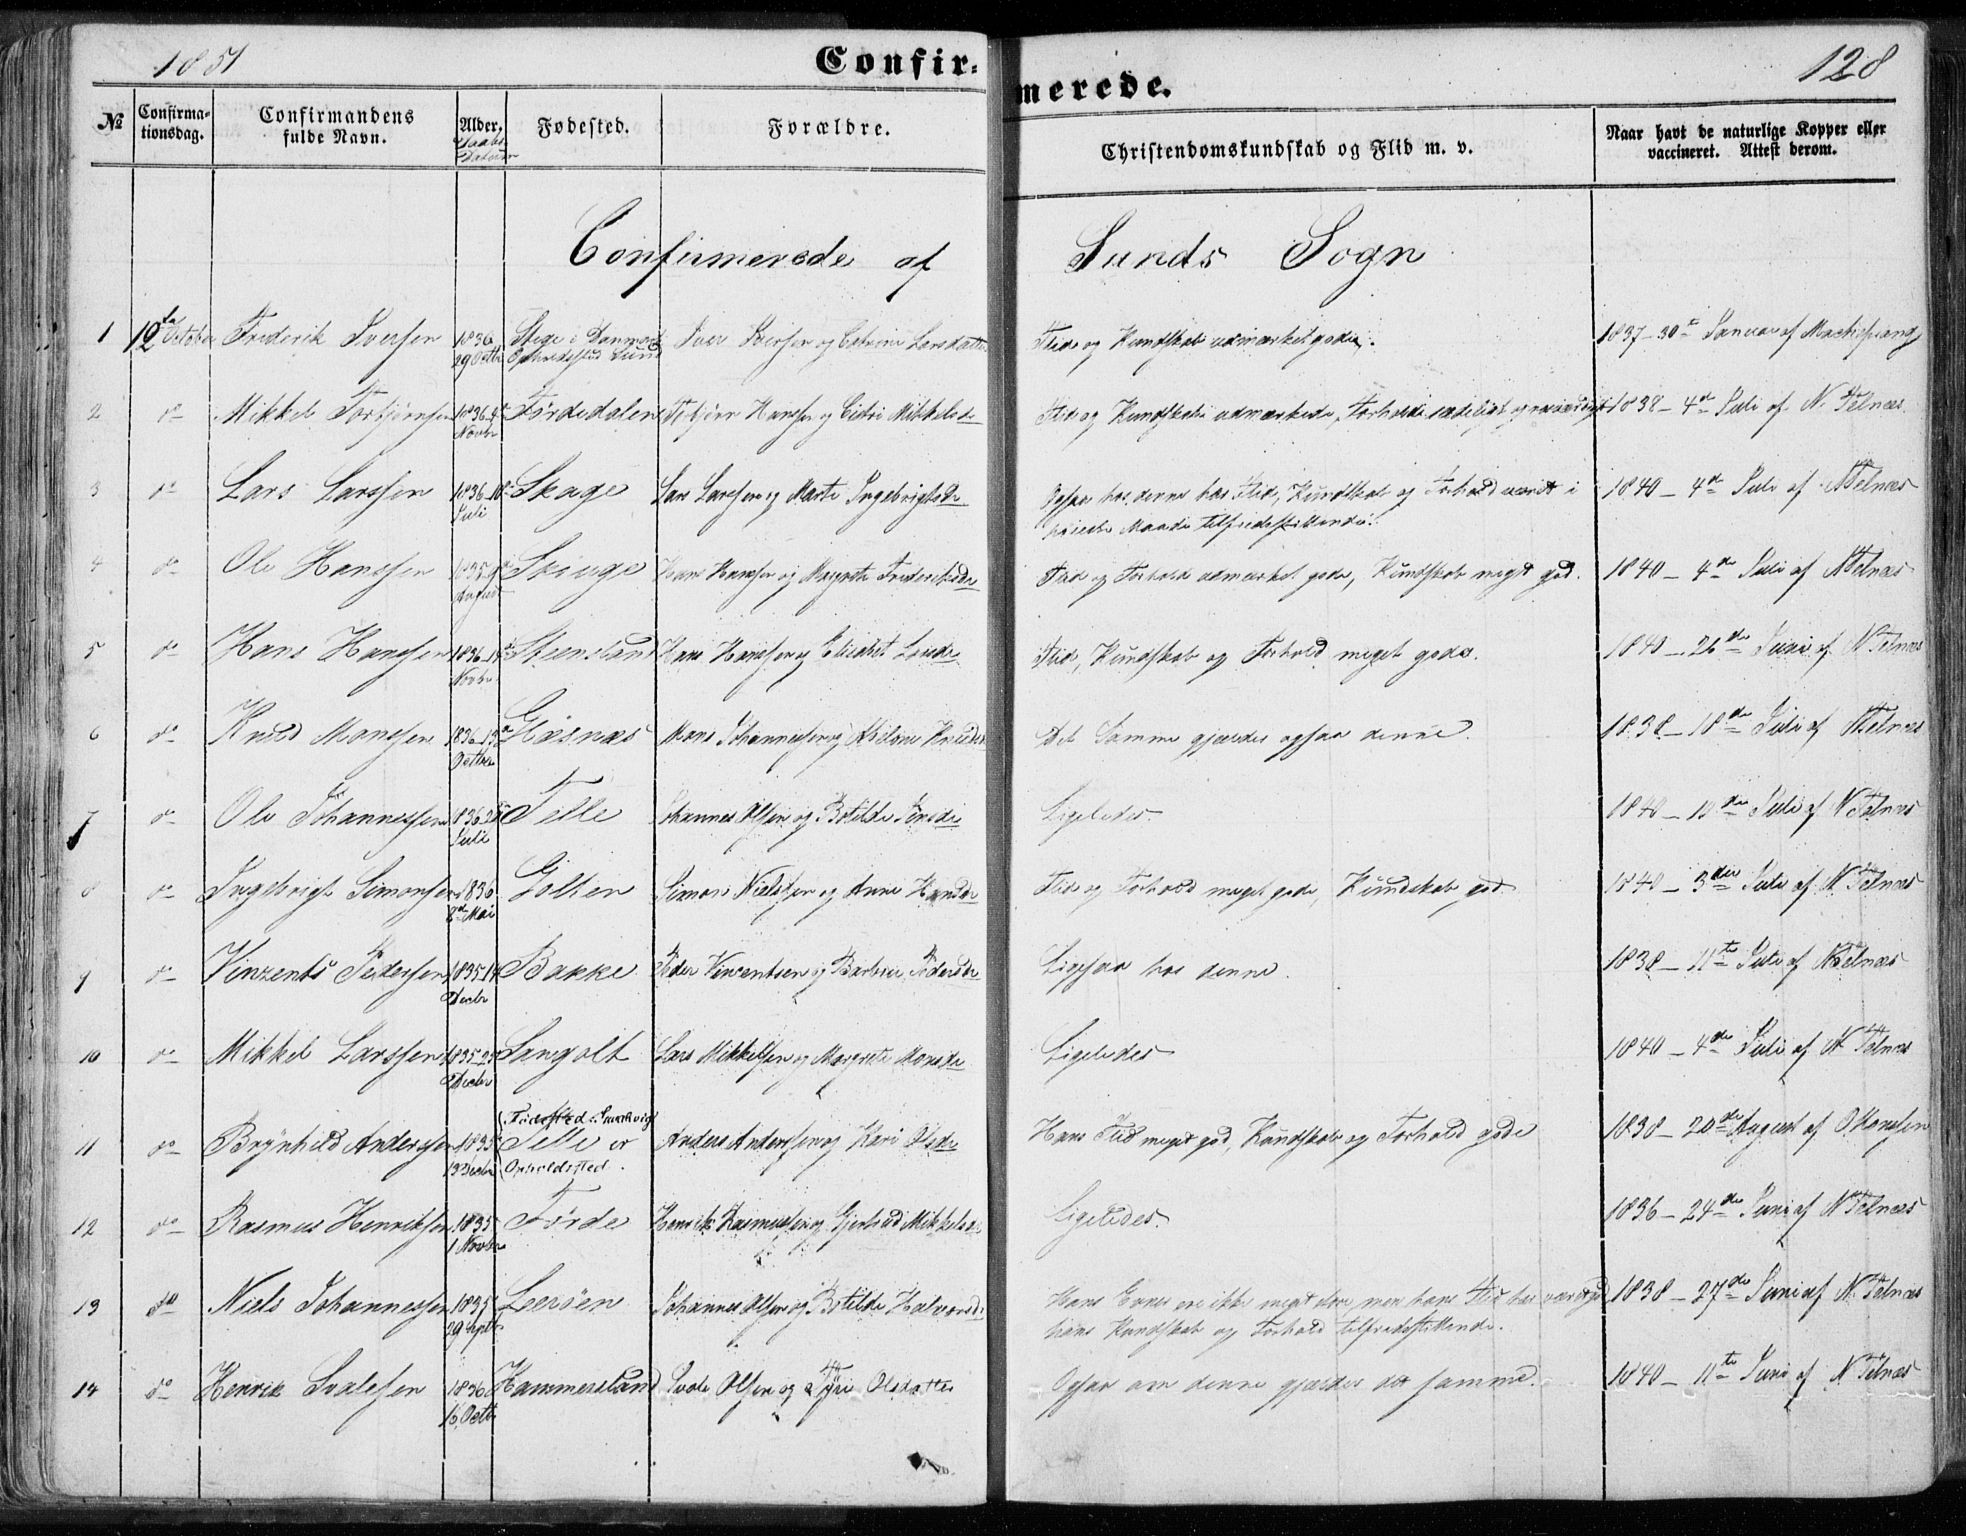 1851
Confir-
merede.
128
No
Confirma-
tionsdag.
Confirmandens
fulde Navn.
Alder.
Daabs
Datum
Fødested.
Forældre.
Christendomskundskab og Flid m. v.
Naar havt de naturlige Kopper eller
vaccineret. Attest derom.
Confirmerede af Sunds Sogn
1 12 October Frederik Iversen 1836 29 Octbr Stege i Danmark Opholdssted Sund Iver Iversen og Catrine Larsdatter Flid og Kundskab udmærket gode. 1837 - 30 Januar af
2 do Mikkel Torbjørnsen 1836 Novbr Førdedalen Torbjørn Hanssen og Mikkelsdr Flid og Kundskab udmærkede, Forhold sædeligt og 1838 - 4de Juli af N. Telnæs
3 do Lars Larssen 1836 18 Juli Skage Lars Larssen og Marte Ingebrigtsdr Ogsaa hos denne har Flid, Kundskab og Forhold været i
høieste Maade tilfredsstillende. 1840 - 4de Juli af N Telnæs
4 do Ole Hanssen 1835 August Skinge Hans Hanssen og Margrete Frederiksdr Flid og Forhold udmærket gode, Kundskab meget god. 1840 - 4de Juli af N Telnæs
5 do Hans Hanssen 1836 Novbr Steensland Hans Hanssen og Elisabet Larsdr Flid, Kundskab og Forhold meget gode. 1840 - 26de Juni af N Telnæs
6 do Knud Monssen 1836 13 Octbr Glæsnæs Mons Johannessen og Knudsdr Det Samme gjælder ogsaa denne. 1838 - 18de Juli af N Telnæs
7 do Ole Johannessen 1836 25 Juli Telle Johannes Olsen og Botilde Ligeledes 1840 - 10de Juli af N Telnæs
8 do Ingebrigt Simonsen 1836 8de Mai Golten Simon Nielssen og Anne Hansdr Flid og Forhold meget gode, Kundskab god 1840 - 3die Juli af N Telnæs
9 do Vinzents Pedersen 1835 Decbr Bakke Peder Vincentsen og Barbra Pedersdr Ligesaa hos denne. 1838 - 11te Juli af N Telnæs
10 do Mikkel Larssen 1835 25 Decbr Sangolt Lars Mikkelsen og Margrete Monsdr Ligeledes 1840 - 4de Juli af N Telnæs
11 do Brynhild Anderssen 1835 13 Decbr (Fødested: Telle er Opholdssted. Anders Anderssen og Kari Olsdr Hans Flid meget god, Kundskab og Forhold gode 1838 - 20de August af
12 do Rasmus Henriksen 1835 1 Novbr Førde Henrik Rasmussen og Gjertrud Mikkelsdr Ligeledes. 1836 - 24de Juni af N Telnæs
13 do Niels Johannessen 1835 29 Septbr Leerøen Johannes Olsen og Botilde Halvorsdr Hans Evner ere ikke meget store, men hans Flid har været god,
hans Kundskab og Forhold tilfredsstillende. 1838 - 27de Juni af N. Telnæs
14 do Henrik Svalesen 1836 16 Octbr Hammersland Svale Olsen og Olsdatter Ogsaa om denne gjælder det samme. 1840 - 11te Juni af N Telnæs